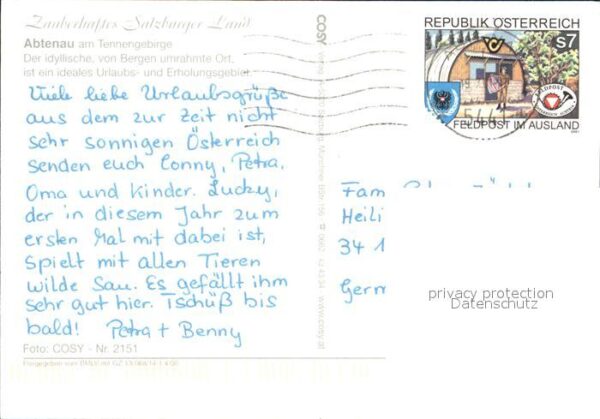 Zauberhaftes Salzburger Land
Abtenau am Tennengebirge
Der idyllische, von Bergen umrahmte Ort,
ist ein ideales Urlaubs- und Erholungsgebiet
Viele liebe Urlaubsgrüße
aus dem zur Zeit nicht
sehr sonnigen Österreich
senden euch Conny, Petra,
Oma und Kinder. Lucky,
der in diesem Jahr zum
ersten Mal mit dabei ist,
spielt mit allen Tieren
wilde Sau. Es gefällt ihm
sehr gut hier. Tschüß bis
bald! Petra + Benny
Foto: COSY - Nr. 2151
COSY
www.cosy.at
REPUBLIK ÖSTERREICH
S7
FELDPOST
FELDPOST IM AUSLAND
Fam
Heili
34 1
Germ
privacy protection
Datenschutz